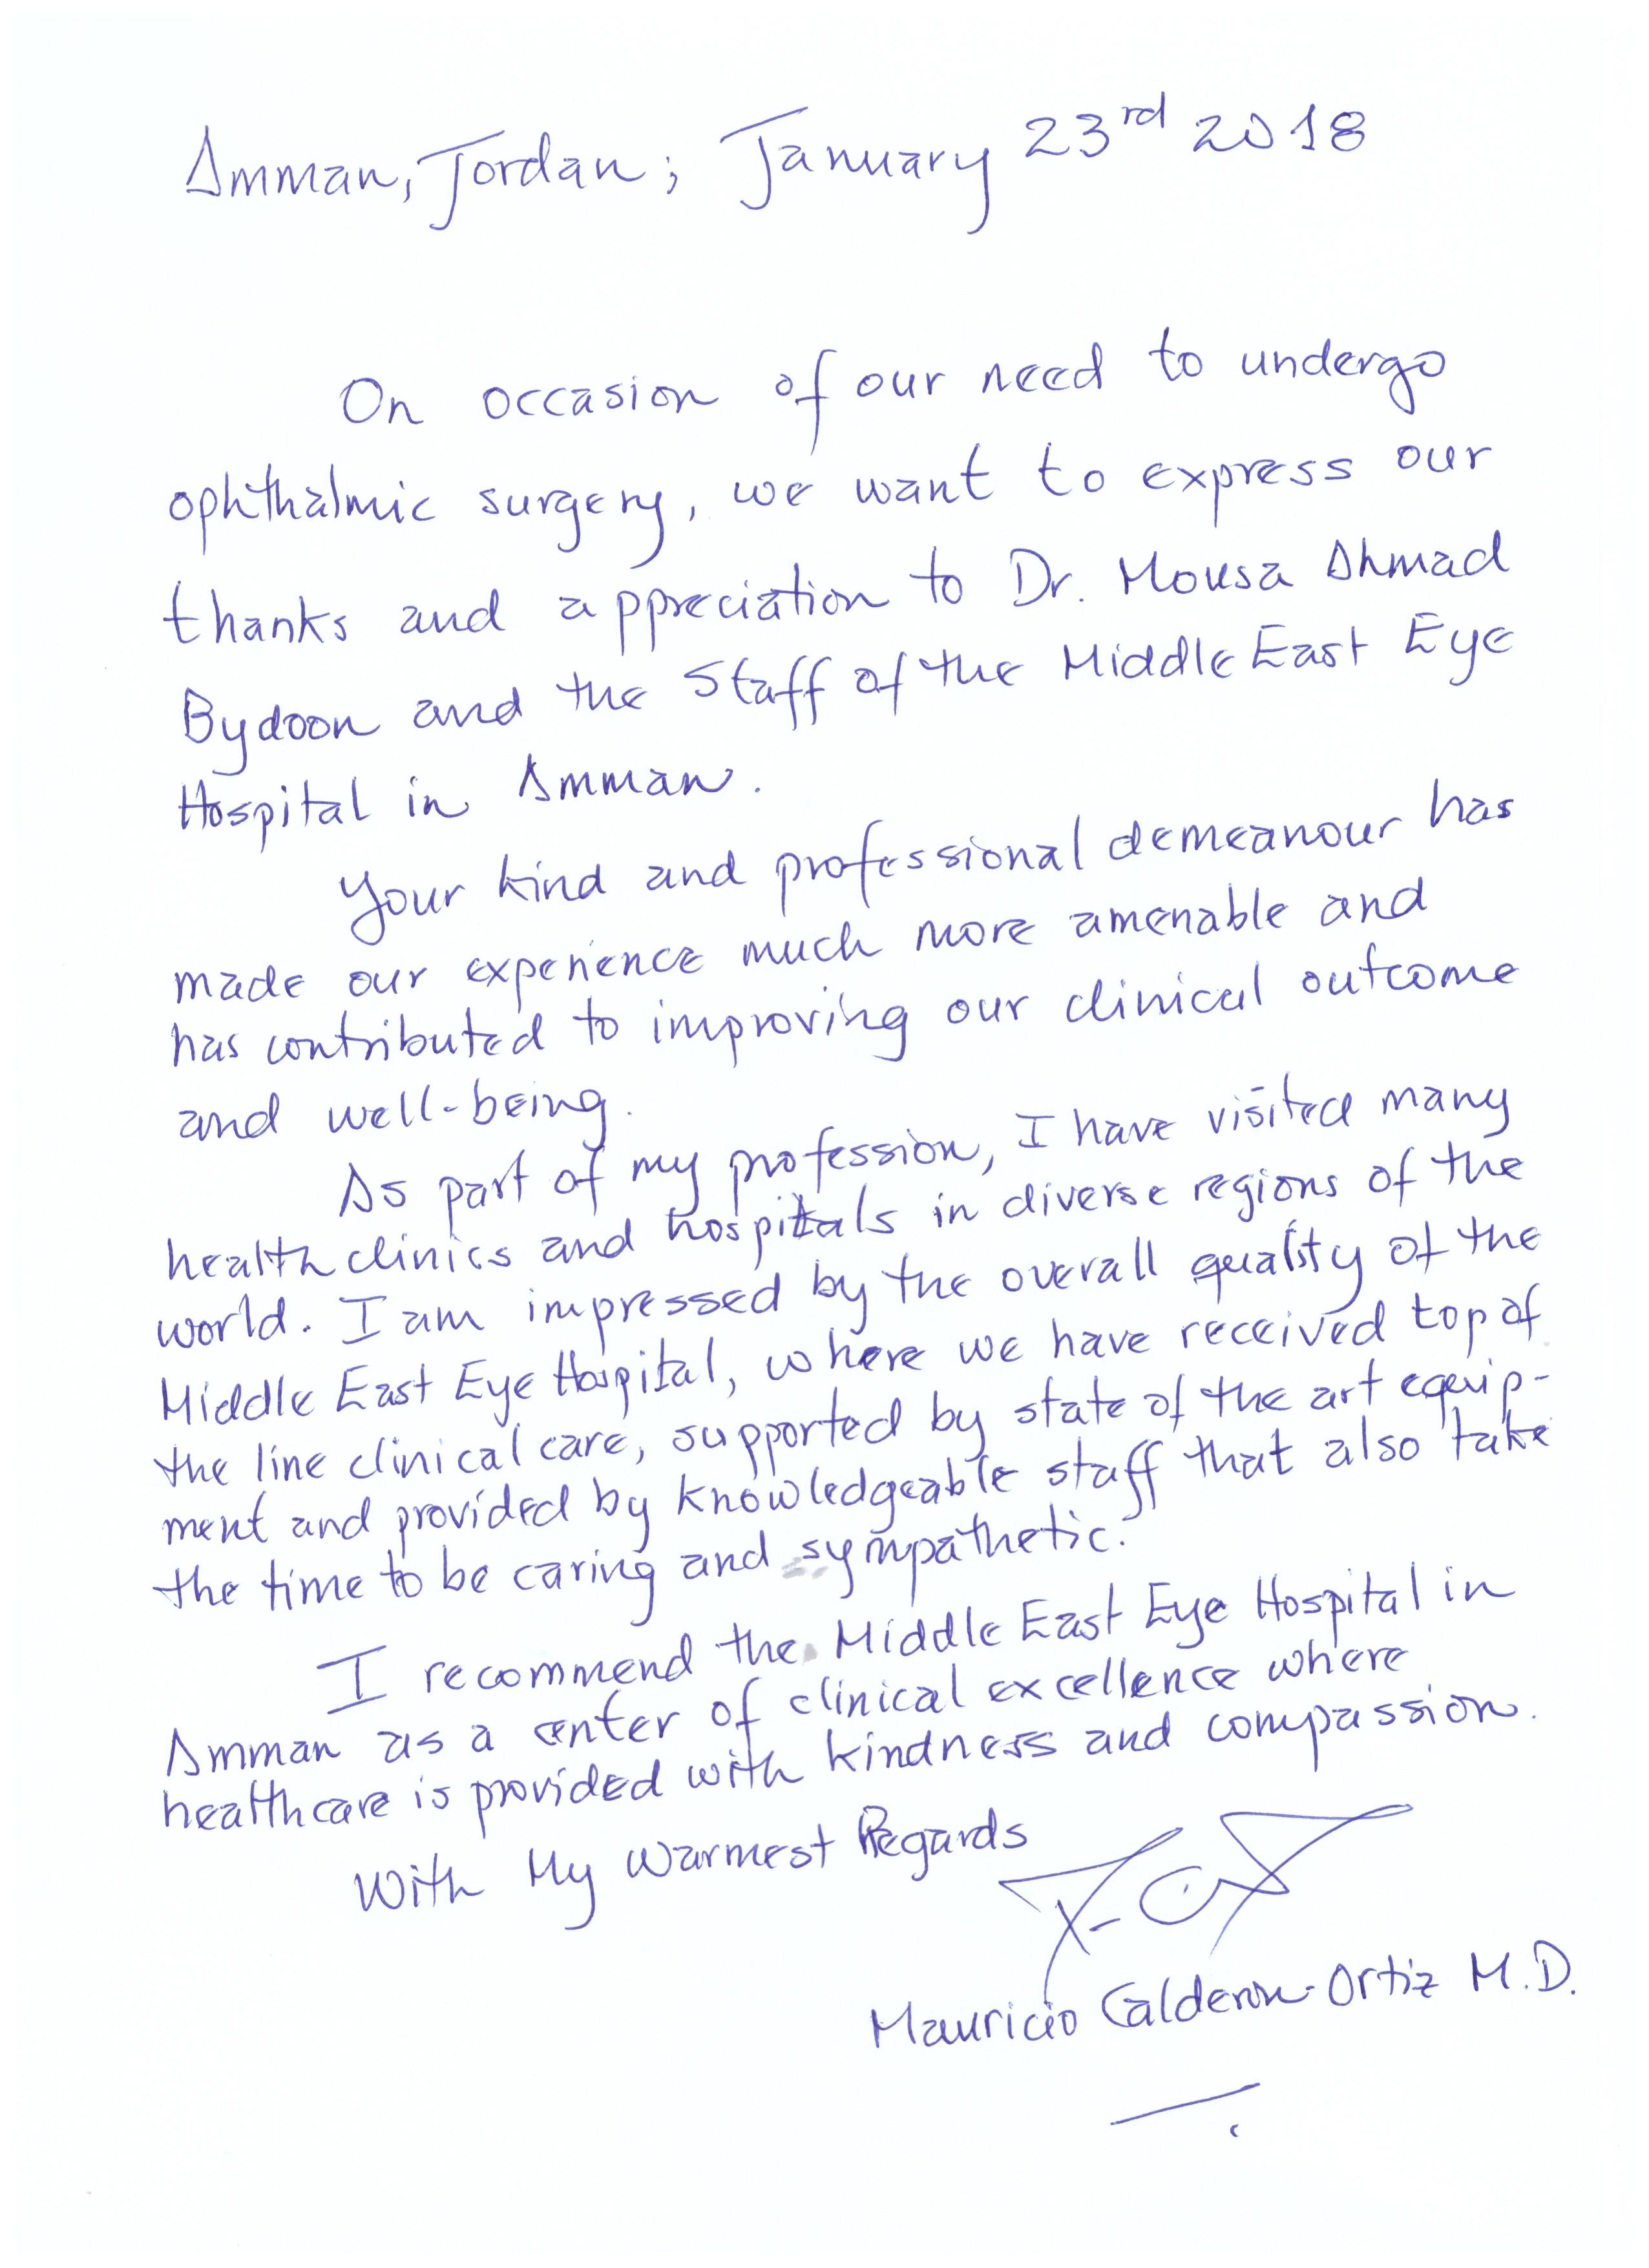 Amman, Jordan; January 23rd 2018
On occasion of our need to undergo
ophthalmic surgery, we want to express our
thanks and appreciation to Dr. Mousa Ahmad
Bydoon and the Staff of the Middle East Eye
Hospital in Amman.
Your kind and professional demeanour has
made our experience much more amenable and
has contributed to improving our clinical outcome
and well-being.
As part of my profession, I have visited many
health clinics and hospitals in diverse regions of the
world. I am impressed by the overall quality of the
Middle East Eye Hospital, where we have received top of
the line clinical care, supported by state of the art equip-
ment and provided by knowledgeable staff that also take
the time to be caring and sympathetic.
I recommend the Middle East Eye Hospital in
Amman as a center of clinical excellence where
healthcare is provided with kindness and compassion.
With My Warmest Regards
Mauricio Calderon-Ortiz M.D.